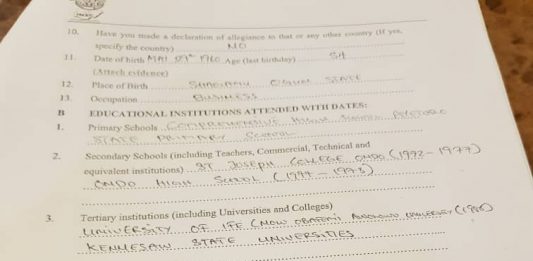 10. Have you made a declaration of allegiance to that or any other country (If yes,
specify the country) NO
11. Date of birth MAY 29th 1960 Age (last birthday) 59
(Attach evidence)
12. Place of Birth SHAGAMU OGUN STATE
13. Occupation BUSINESS
B EDUCATIONAL INSTITUTIONS ATTENDED WITH DATES:
1. Primary Schools COMPREHENSIVE HIGH
STATE PRIMARY SCHOOL
2. Secondary Schools (including Teachers, Commercial, Technical and
equivalent institutions) ST JOSEPH COLLEGE ONDO (1972 - 1977)
ONDO HIGH SCHOOL (1977 - 1978)
3. Tertiary institutions (including Universities and Colleges)
UNIVERSITY OF IFE (NOW OBAFEMI AWOLOWO UNIVERSITY (1986)
KENNESAW STATE UNIVERSITIES